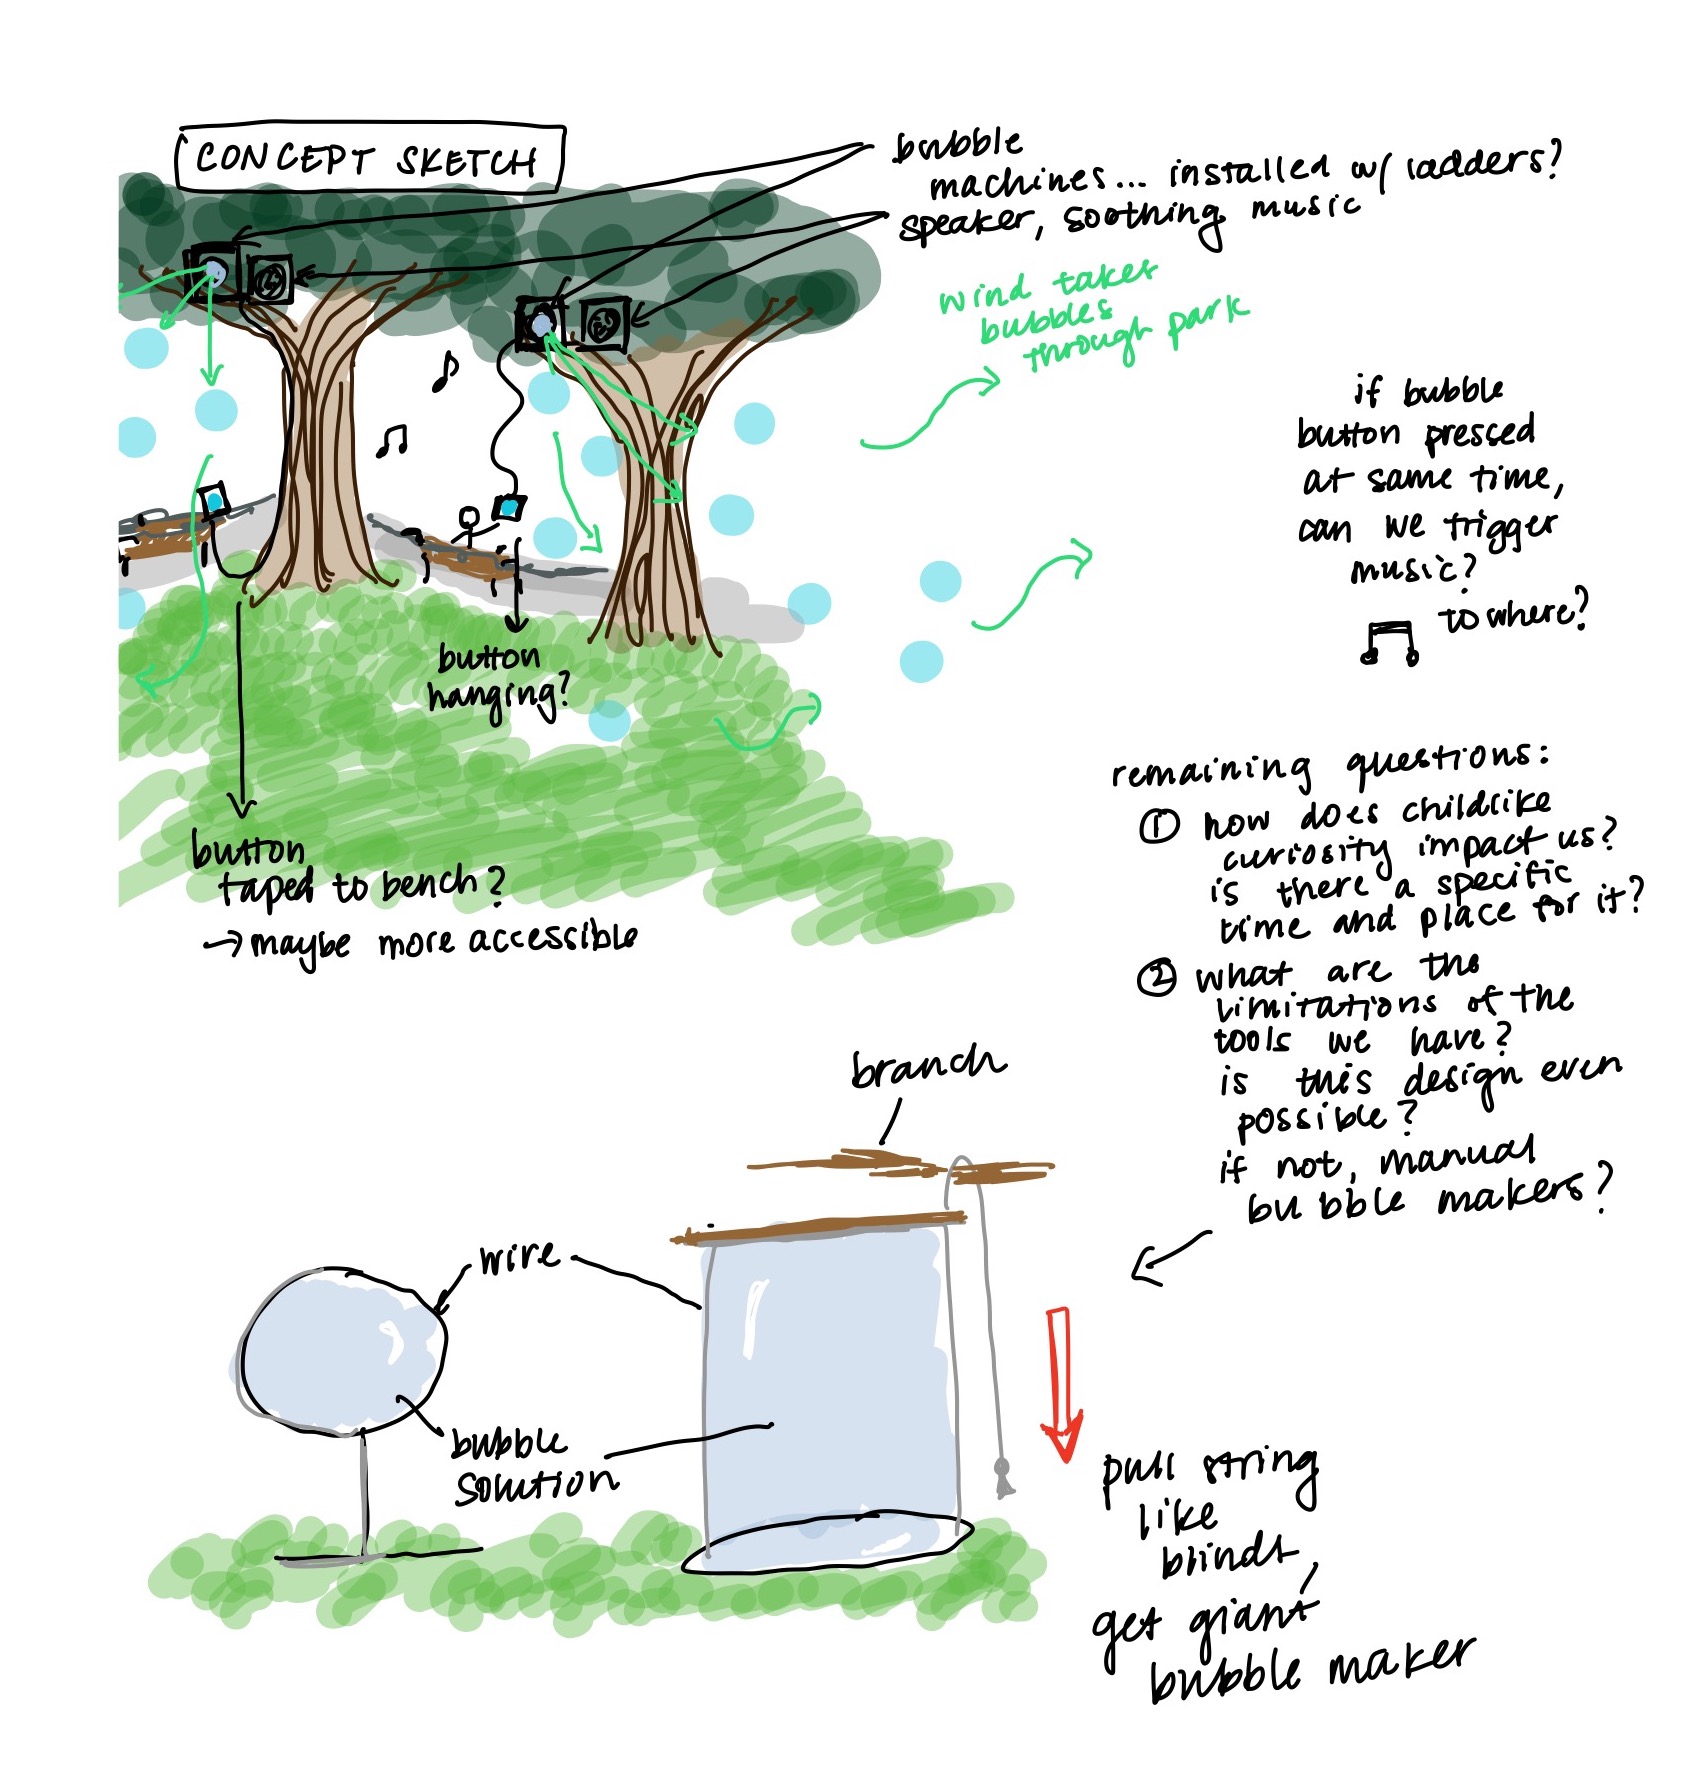 CONCEPT SKETCH
bubble
machines... installed w/ ladders?
speaker, soothing music
wind takes
bubbles
through park
if bubble
button pressed
at same time,
can we trigger
music?
to where?
button
hanging?
button
taped to bench?
→ maybe more accessible
remaining questions:
① how does childlike
curiosity impact us?
is there a specific
time and place for it?
② what are the
limitations of the
tools we have?
is this design even
possible?
if not, manual
bubble makers?
branch
wire
bubble
solution
pull string
like
blinds,
get giant
bubble maker